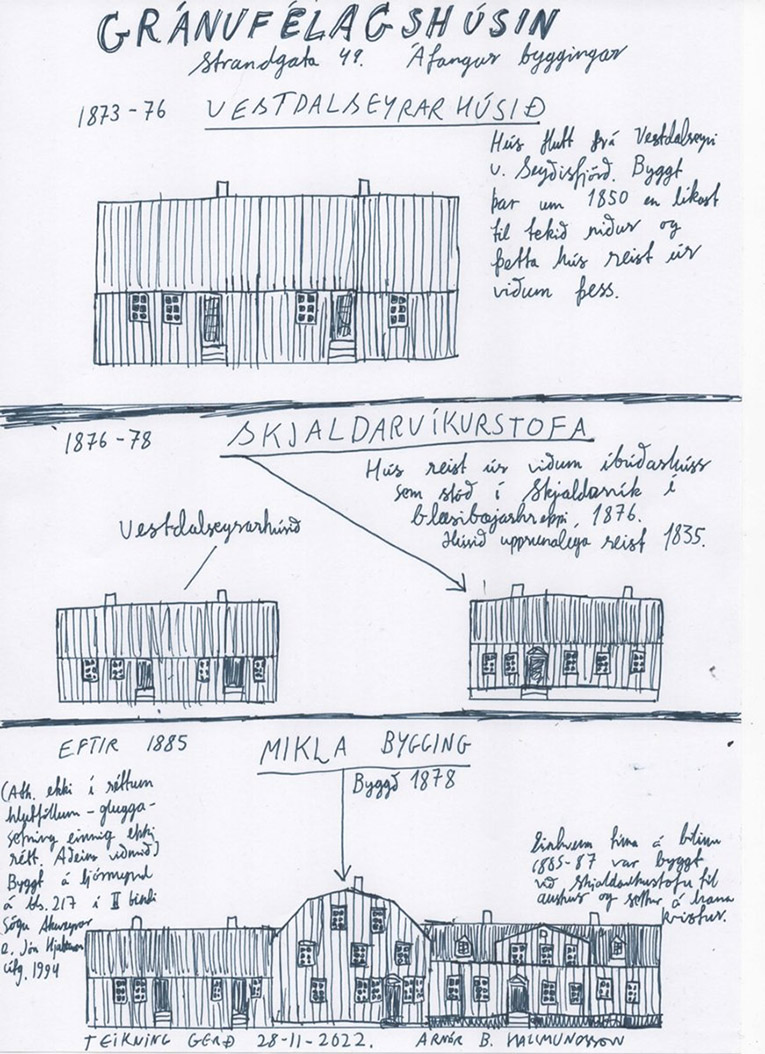 GRÁNUFÉLAGSHÚSIN
Strandgata 49. Áfangar byggingar
1873-76 VESTDALSEYRARHÚSIÐ
Hús flutt frá Vestdalseyri
v. Seyðisfjörð. Byggt
þar um 1850 en líkast
til tekið niður og
þetta hús reist úr
viðum þess.
1876-78 SKJALDARVÍKURSTOFA
Hús reist úr viðum íbúðarhúss
sem stóð í Skjaldarvík í
Glæsibæjarhreppi, 1876.
Húsið upprunalega reist 1835.
Vestdalseyrarhúsið
EFTIR 1885 MIKLA BYGGING
Byggð 1878
(Ath. ekki í réttum
hlutföllum - glugga-
setning einnig ekki
rétt. Aðeins viðmið)
Byggt á ljósmynd
á bls. 217 í II bindi
Sögu Akureyrar
e. Jón Hjaltason
útg. 1994
Einhvern tíma á bilinu
1885-87 var byggt
við Skjaldarvíkurstofu til
austurs og settur á hana
kvistur.
TEIKNING GERÐ 28-11-2022. ARNÓR B. HALLMUNDSSON